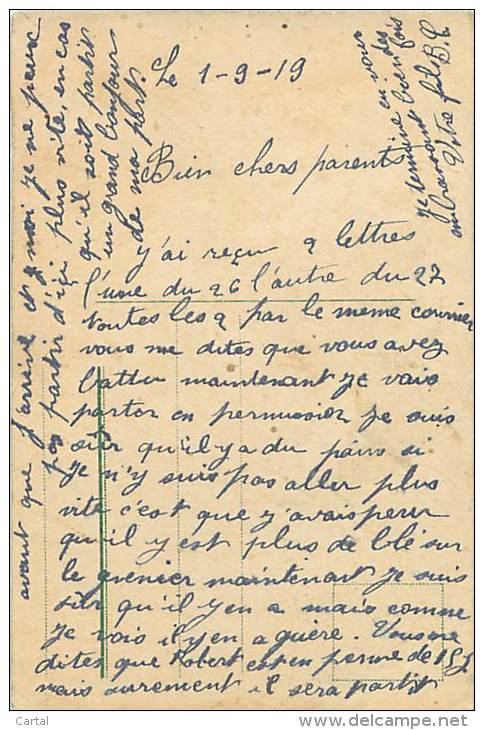 Le 1-9-19
Bien chers parents
j'ai reçu 2 lettres
l'une du 26 l'autre du 27
toutes les 2 par le meme courrier
vous me dites que vous avez
battu maintenant je vais
partir en permission je suis
sûr qu'il y a du pain si
je n'y suis pas aller plus
vite c'est que j'avais peur
qu'il y est plus de blé sur
le grenier maintenant je suis
sûr qu'il y en a mais comme
je vois il y en a guère. Vous me
dites que Robert est en perme de 15 j
mais surement il sera partit
avant que j'arrive et moi je ne peux
pas partir d'ici plus vite, en cas
qu'il soit partit
un grand bonjour
de ma part.
je termine en vous
embrassant bien des fois
Votre fils B.E
Cartal
www.delcampe.net